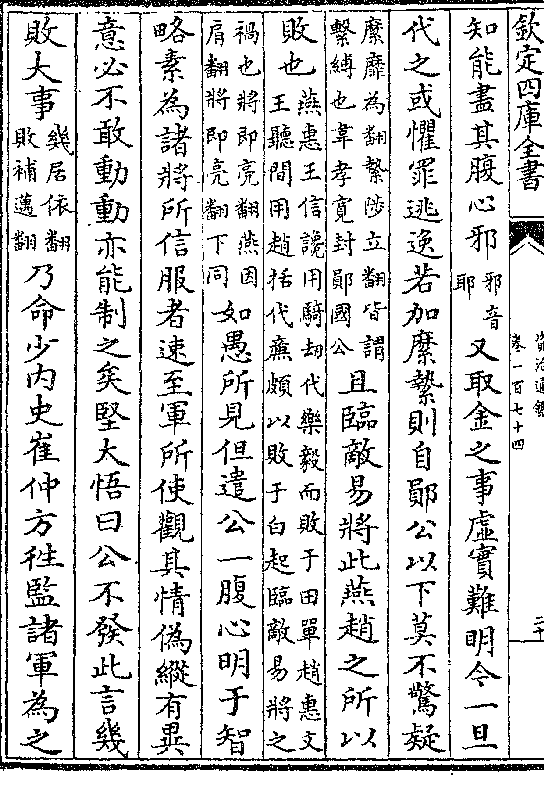 欽定四庫全書
資治通鑑
卷一百七十四
知能盡其腹心邪邪音耶又取金之事虛實難明今一旦
代之或懼罪逃逸若加縻縶則自鄖公以下莫不驚疑
縻靡為翻縶陟立翻皆謂繫縛也韋孝寬封鄖國公且臨敵易將此燕趙之所以
敗也燕惠王信讒用騎劫代樂毅而敗于田單趙惠文王聽間用趙括代廉頗以敗于白起臨敵易將之
禍也將即亮翻燕因肩翻將即亮翻下同如愚所見但遣公一腹心明于智
略素為諸將所信服者速至軍所使觀其情偽縱有異
意必不敢動動亦能制之矣堅大悟曰公不發此言幾
敗大事幾居依翻敗補邁翻乃命少內史崔仲方徃監諸軍為之